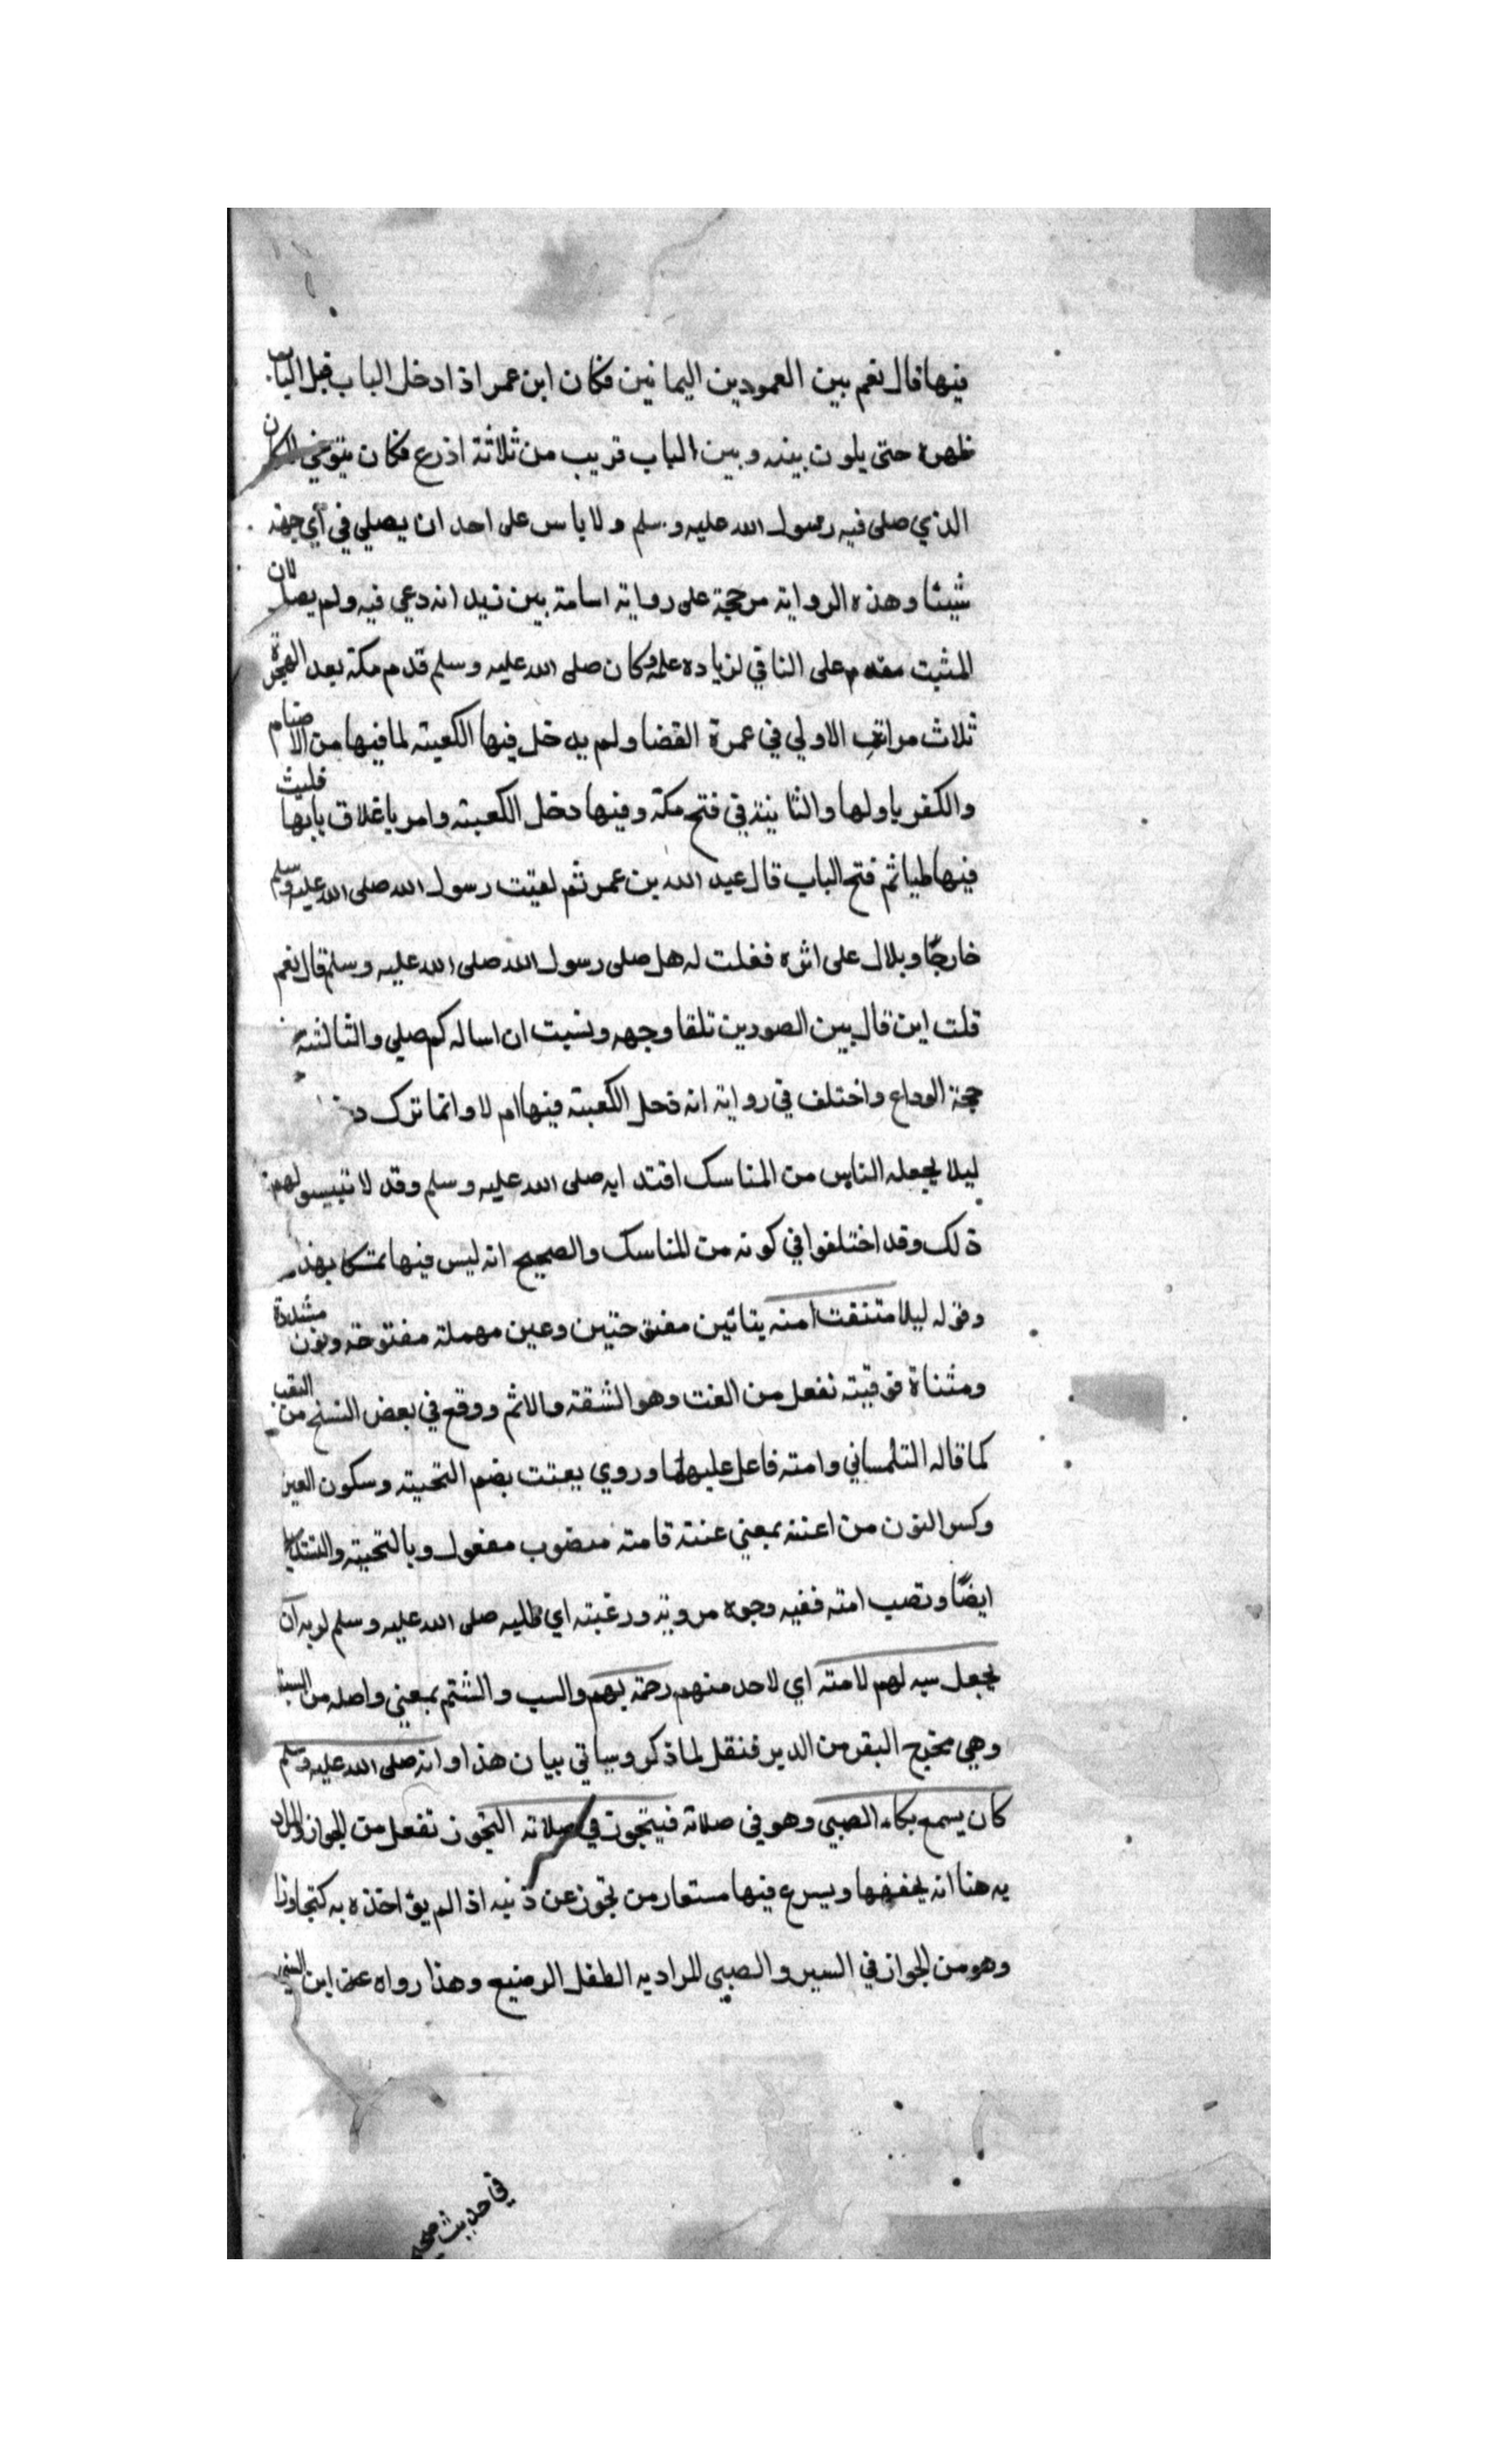 فيها قال نعم بين العمودين اليمانين فكان ابن عمر اذا دخل الباب قبل الباب
ظهره حتى يلون بينه وبين الباب قريب من ثلاثة اذرع فكان يتوخي المكان
الذي صلى فيه رسول الله عليه وسلم ولا باس على احد ان يصلي في أي جهة
شيئا وهذه الرواية مرجحة على رواية اسامة بين زيد انه دعي فيه ولم يصل لان
المثبت مقدم على النافي لزيادة علمه وكان صلى الله عليه وسلم قدم مكة بعد الهجرة
ثلاث مرات الاولي في عمرة القضا ولم يدخل فيها الكعبة لما فيها من الاصنام
والكفر باولها والثانية في فتح مكة وفيها دخل الكعبة وامر باغلاق بابها فلبث
فيها مليا ثم فتح الباب قال عبد الله بن عمر ثم لقيت رسول الله صلى الله عليه وسلم
خارجًا وبلال على اثره فقلت له هل صلى رسول الله صلى الله عليه وسلم قال نعم
قلت اين قال بين الصورين تلقا وجهه ونسيت ان اساله كم صلى والثالثة
حجة الوداع واختلف في رواية انه دخل الكعبة فيها ام لا وانما ترك
ليلا يجعله الناس من المناسك اقتدا به صلى الله عليه وسلم وقد لا تيسر لهم
ذلك وقد اختلفوا في كونه من المناسك والصحيح انه ليس فيها تمسكا بهذ
وقوله ليلا متنفت امته بتائين مفتوحتين وعين مهملة مفتوحة ونون مشددة
ومثناة فوقية تفعل من العنت وهو الشقة والاثم ووقع في بعض النسخ من التعب
كما قاله التلمساني وامته فاعل عليهما وروي يعنت بضم التحتية وسكون العين
وكسر النون من اعنته بمعني عنته فامته منصوب مفعول وبالتحتية والتشديد
ايضًا ونصب امته ففيه وجوه مروية ورغبته اي طلبه صلى الله عليه وسلم لربه ان
يجعل سبه لهم لامته اي لاحد منهم رحمة بهم والسب والشتم بمعني واصله من السبة
وهي مخرج البقر من الدبر فنقل لما ذكر وسياتي بيان هذا وانه صلى الله عليه وسلم
كان يسمع بكاء الصبي وهو في صلاته فيتجوز في صلاته التجوز تفعل من الجواز والمراد
به هنا انه يخففها ويسرع فيها مستعار من تجوز عن ذنبه اذا لم يؤاخذه به كتجاوزا
وهو من الجواز في السير والصبي المراد به الطفل الرضيع وهذا رواه عن ابن
في حديث صحيح